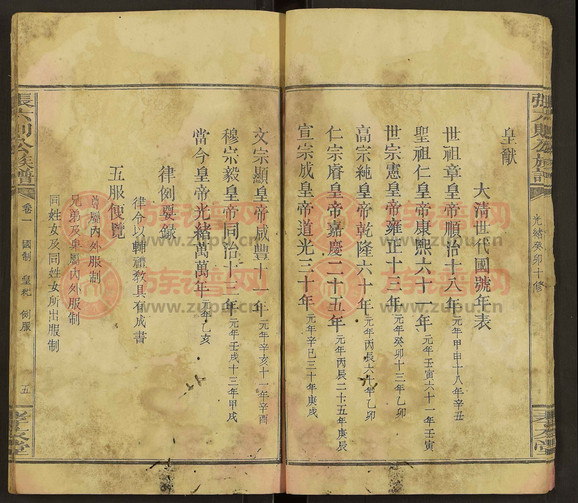 張六則公族譜
光緒癸卯十修
孝友堂
皇猷
大清世代國號年表
世祖章皇帝順治十八年 元年甲申十八年辛丑
聖祖仁皇帝康熙六十一年 元年壬寅六十一年壬寅
世宗憲皇帝雍正十三年 元年癸卯十三年乙卯
高宗純皇帝乾隆六十年 元年丙辰六十年乙卯
仁宗睿皇帝嘉慶二十五年 元年丙辰二十五年庚辰
宣宗成皇帝道光三十年 元年辛巳三十年庚戌
文宗顯皇帝咸豐十一年 元年辛亥十一年辛酉
穆宗毅皇帝同治十三年 元年壬戌十三年甲戌
當今皇帝光緒萬萬年 元年乙亥
律例要錄
律令以輔禮教具有成書
五服便覽
尊屬內外服制
兄弟及卑屬內外服制
同姓女及同姓女所出服制
張六則公族譜
卷一
國制
例服
五
孝友堂
族譜網
www.zupu.cn